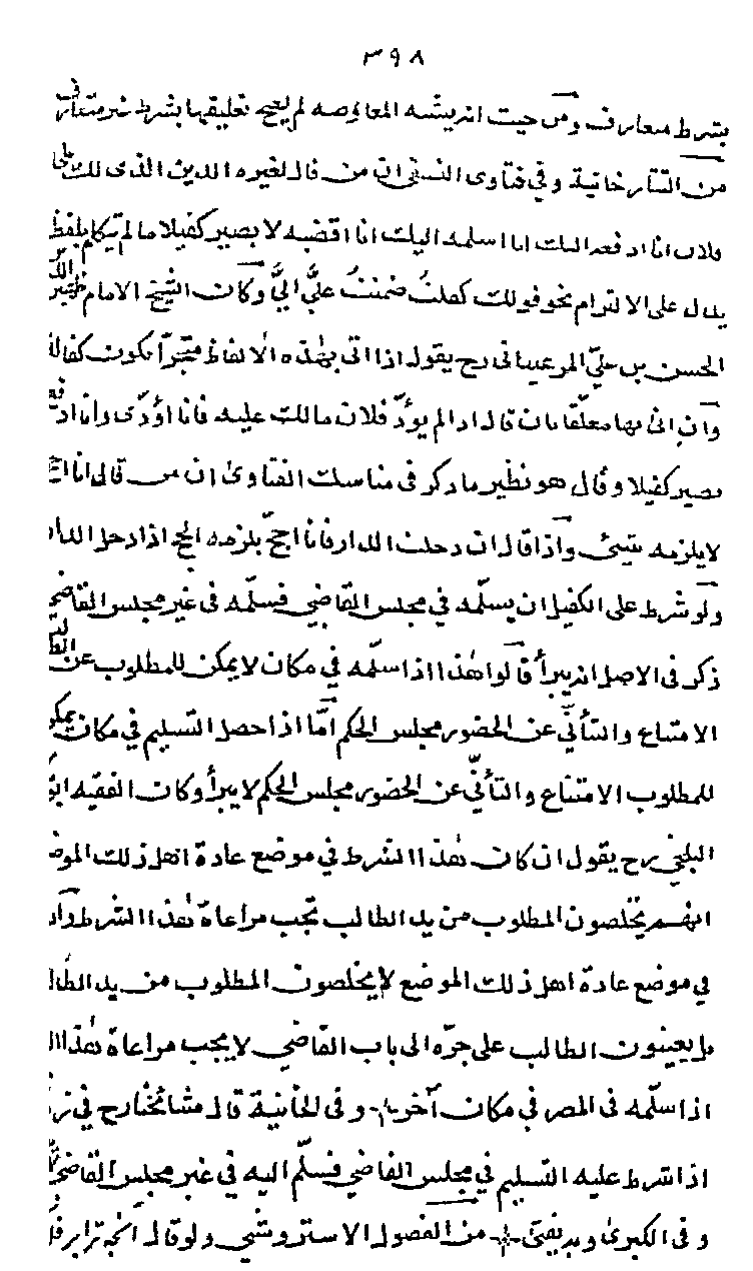 ٣٩٨
بشرط متعارف ومن حيث انه يشبه المعاوضه لم يصح تعليقها بشرط غير متعارف
من التتارخانية وفي فتاوى النسفي ان من قال لغيره الدين الذى لك على
فلان انا ادفعه اليك انا اسلمه اليك انا اقضيه لا يصير كفيلا ما لم يتكلم بلفظ
يدل على الالتزام نحو قولك كفلتُ ضمنتُ عليَّ اليَّ وكان الشيخ الامام ظهير الد
الحسن بن عليّ المرغينانى رح يقول اذا اتى بهذه الالفاظ منجّرا يكون كفالة
وان اتى بها معلّقا بان قال اذا لم يؤدّ فلان مالك عليه فانا اؤدّى وانا ادفع
يصير كفيلا وقال هو نظير ما ذكر فى مناسك الفتاوى ان من قال انا احج
لا يلزمه شيئ واذا قال ان دخلت الدار فانا احجّ يلزمه الحج اذا دخل الدار
ولو شرط على الكفيل ان يسلّمه في مجلس القاضي فسلّمه فى غير مجلس القاضي
ذكر فى الاصل انه يبرأ قالوا هذا اذا سلّمه في مكان لا يمكن للمطلوب عن
الامتناع والتأبّي عن الحضور مجلس الحكم امّا اذا حصل التسليم في مكان يمكن
للمطلوب الامتناع والتأبّي عن الحضور مجلس الحكم لا يبرأ وكان الفقيه ابو
البلخي رح يقول ان كان هذا الشرط في موضع عادة اهل ذلك الموضـ
انهم يخلصون المطلوب من يد الطالب تجب مراعاة هذا الشرط وان
في موضع عادة اهل ذلك الموضع لا يخلصون المطلوب من يد الطا
بل يعينون الطالب على جرّه الى باب القاضي لا يجب مراعاة هذا ال
اذا سلّمه فى المصر في مكان آخر وفى الخانية قال مشائخنا رح في
اذا شرط عليه التسليم في مجلس القاضي فسلّم اليه في غير مجلس القاضي
وفى الكبرى وبه يفتى من الفصول الاستروشني ولو قال